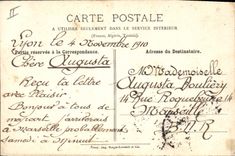 II
CARTE POSTALE
A UTILISER SEULEMENT DANS LE SERVICE INTÉRIEUR
(France, Algérie, Tunisie)
Lyon le 4 Novembre 1910
Partie réservée à la Correspondance.
Adresse du Destinataire.
Chère Augusta
Reçu ta lettre
avec plaisir
Bonjour à tous de
ma part j'arriverais
à Marseille probablement
Samedi à
Mademoiselle
Augusta
14 Rue
Marseille